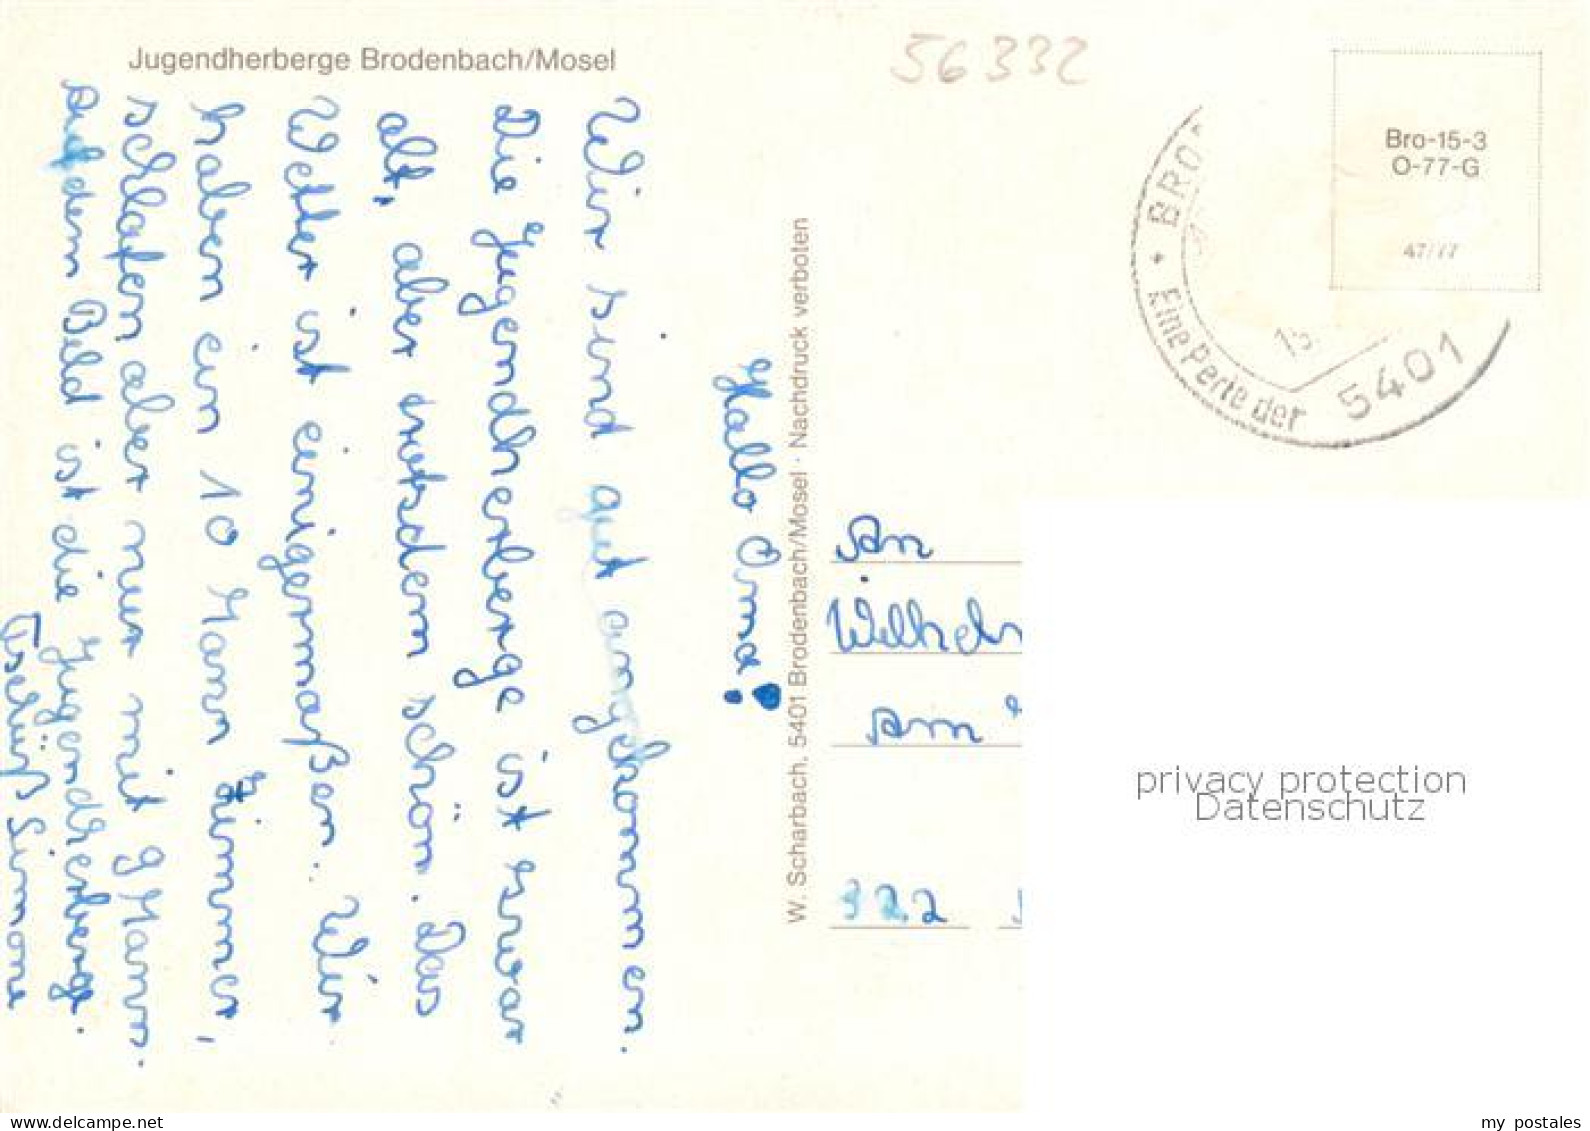 Jugendherberge Brodenbach/Mosel
56332
Bro-15-3
O-77-G
47/77
* BRO
Eine Perle der
5401
Hallo Oma!
Wir sind gut angekommen.
Die Jugendherberge ist zwar
alt, aber trotsdem schön. Das
Wetter ist einigermaßen.. Wir
haben ein 10 Mann Zimmer,
schlafen aber nur mit 9 Mann.
Auf dem Bild ist die Jugendherberge.
Tschüß Simone
W. Scharbach, 5401 Brodenbach/Mosel · Nachdruck verboten
An
Wilhel
Am
322
privacy protection
Datenschutz
my postales